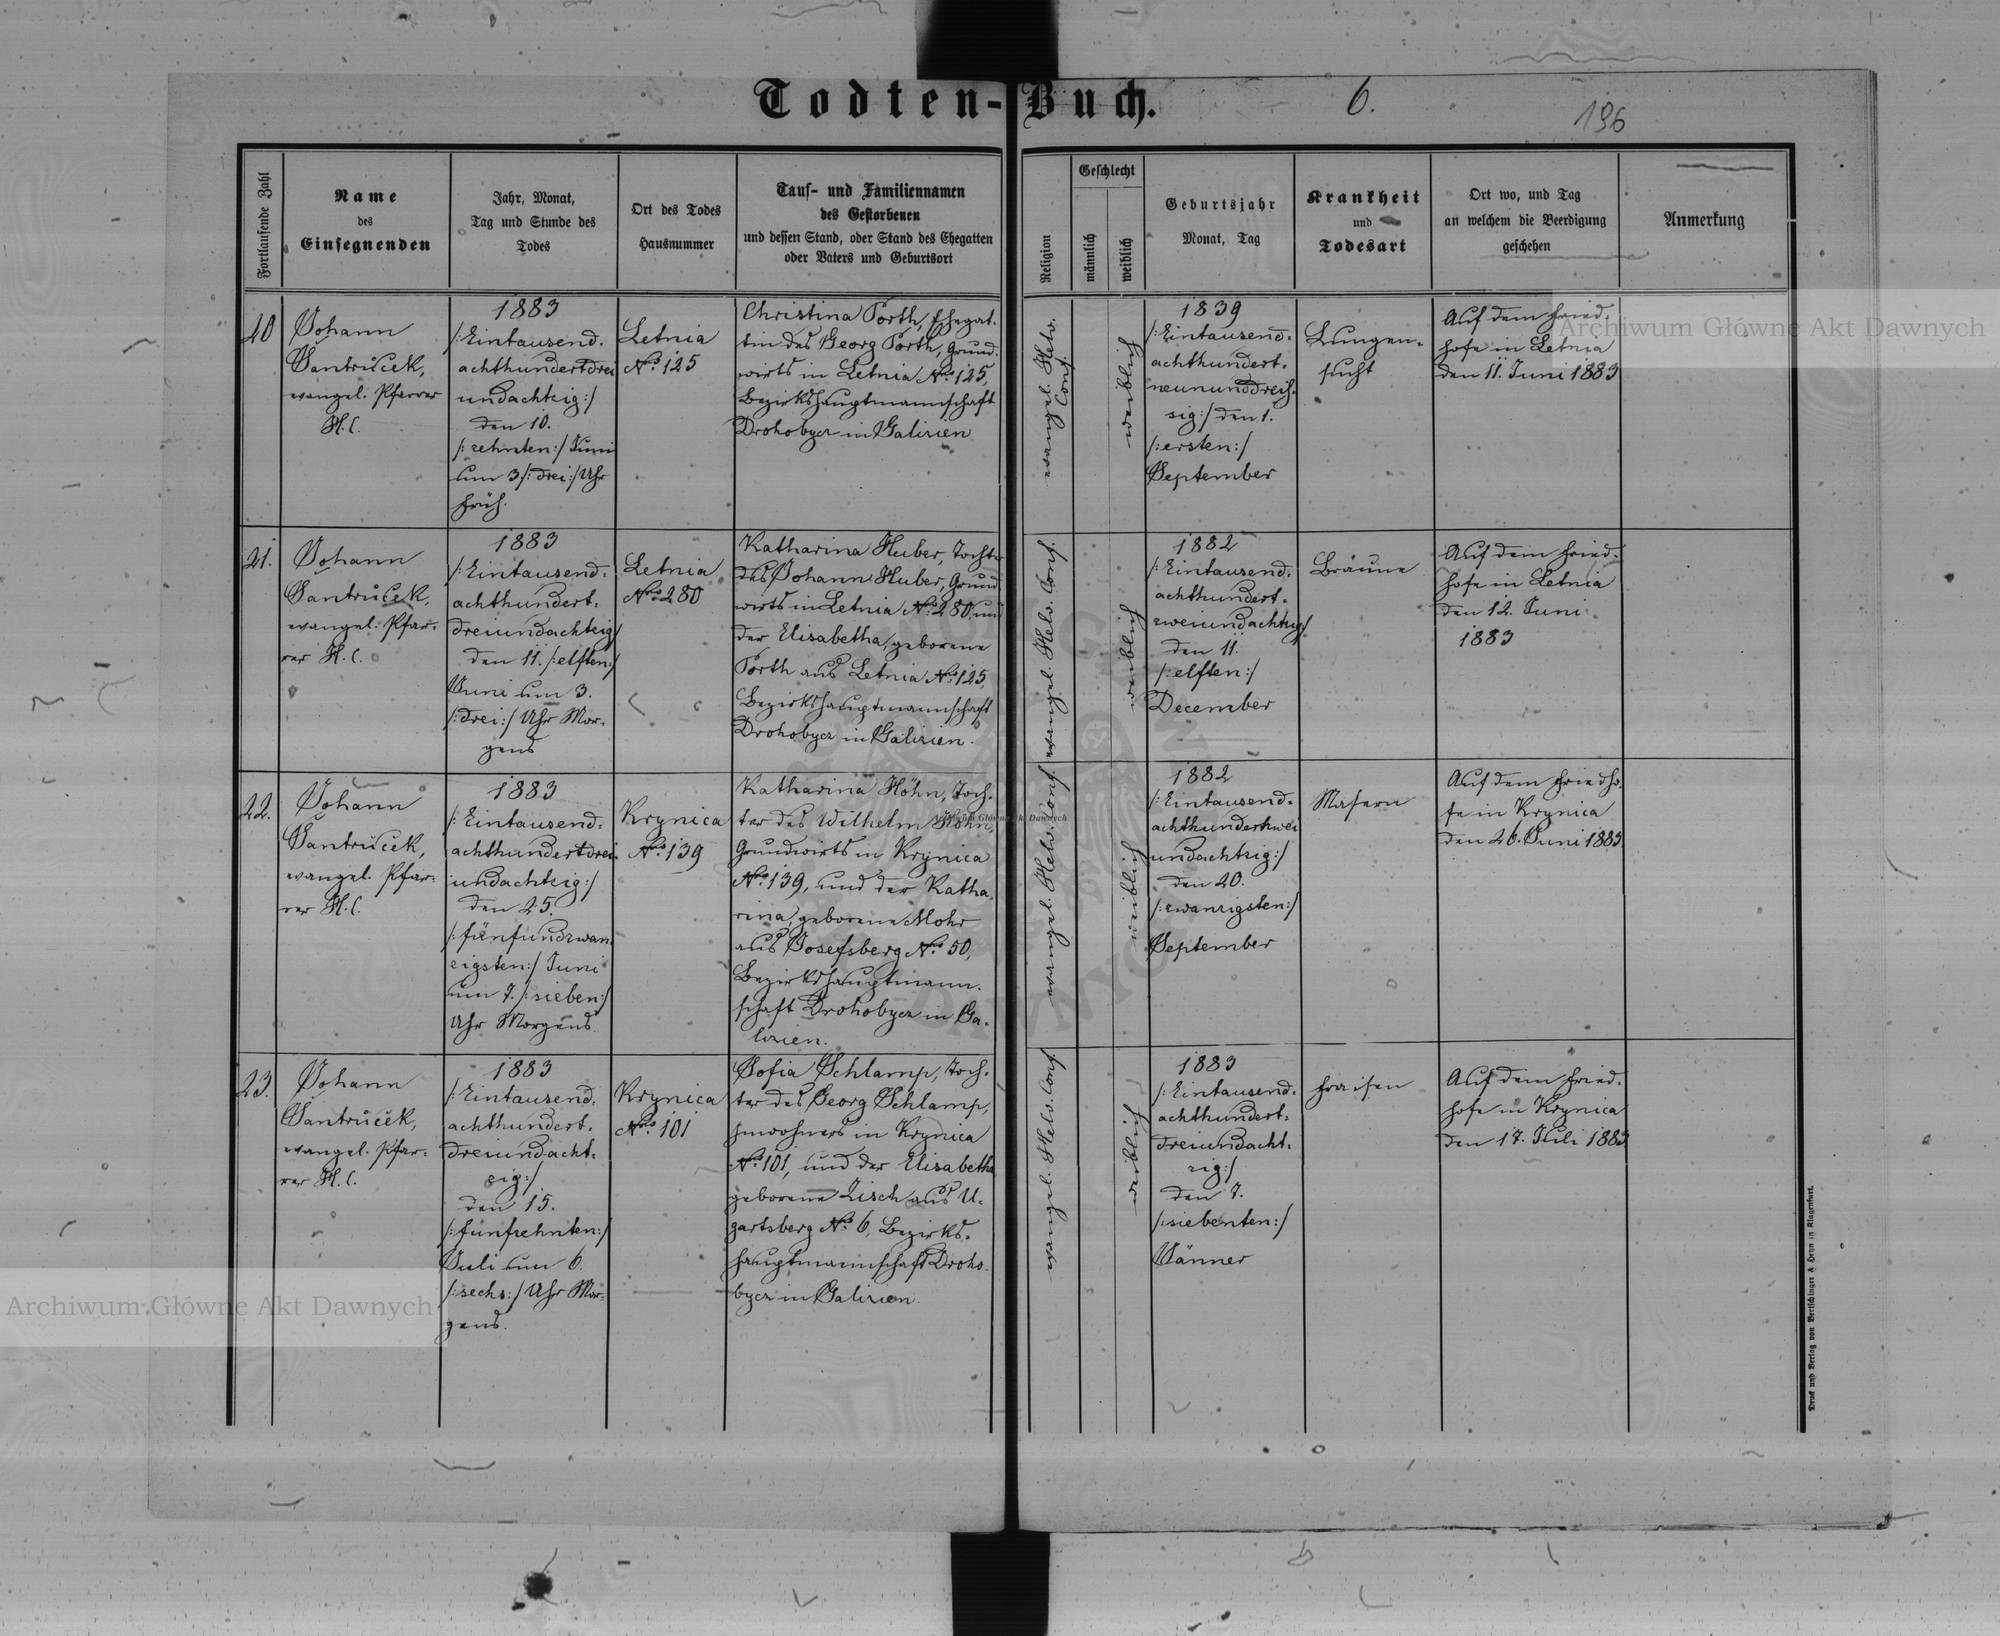 Todten-Buch.
6.
196
Fortlaufende Zahl
Name
des
Einsegnenden
Jahr, Monat,
Tag und Stunde des
Todes
Ort des Todes
Hausnummer
Tauf- und Familiennamen
des Gestorbenen
und dessen Stand, oder Stand des Ehegatten
oder Vaters und Geburtsort
Religion
Geschlecht
männlich
weiblich
Geburtsjahr
Monat, Tag
Krankheit
und
Todesart
Ort wo, und Tag
an welchem die Beerdigung
geschehen
Anmerkung
20
Johann
Santrůček,
evangel. Pfarrer
H.C.
1883
/:Eintausend-
achthundertdrei
undachtzig:/
den 10.
/:zehnten:/ Juni
um 3 /:drei:/ Uhr
früh.
Letnia
No. 125
Christina Porth, Ehegat-
tin des Georg Porth, Grund-
wirts in Letnia No. 125,
Bezirkshauptmannschaft
Drohobycz in Galizien
evangel. Helv.
Conf.
weiblich
1839
/:Eintausend-
achthundert-
neununddreis-
sig:/ den 1.
/:ersten:/
September
Lungen-
sucht
Auf dem Fried-
hofe in Letnia
den 11. Juni 1883
21.
Johann
Santrůček,
evangel. Pfar-
rer H.C.
1883
/:Eintausend-
achthundert-
dreiundachtzig/
den 11. /:elften:/
Juni um 3.
/:drei:/ Uhr Mor-
gens
Letnia
No. 280
Katharina Huber, Tochter
des Johann Huber, Grund-
wirts in Letnia No. 280, und
der Elisabetha, geborene
Porth aus Letnia No. 125,
Bezirkshauptmannschaft
Drohobycz in Galizien.
evangel. Helv. Conf.
weiblich
1882
/:Eintausend-
achthundert-
zweiundachtzig:/
den 11.
/:elften:/
December
Bräune
Auf dem Fried-
hofe in Letnia
den 12. Juni
1883
22.
Johann
Santrůček,
evangel. Pfar-
rer H.C.
1883
/:Eintausend-
achthundertdrei-
undachtzig:/
den 25.
/:fünfundzwan-
zigsten:/ Juni
um 7. /:sieben:/
Uhr Morgens.
Krynica
No. 139
Katharina Höhn, Toch-
ter des Wilhelm Höhn,
Grundwirts in Krynica
No. 139, und der Katha-
rina, geborene Mohr
aus Josefsberg No. 50,
Bezirkshauptmann-
schaft Drohobycz in Ga-
lizien.
evangel. Helv. Conf.
weiblich
1882
/:Eintausend-
achthundertzwei
undachtzig:/
den 20.
/:zwanzigsten:/
September
Masern
Auf dem Friedho-
fe in Krynica
den 26. Juni 1883
23.
Johann
Santrůček,
evangel. Pfar-
rer H.C.
1883
/:Eintausend-
achthundert-
dreiundacht-
zig:/
den 15.
/:fünfzehnten:/
Juli um 6.
/:sechs:/ Uhr Mor-
gens.
Krynica
No. 101
Sofia Schlamp, Toch-
ter des Georg Schlamp,
Inwohners in Krynica
No. 101, und der Elisabetha
geborene Zisch aus U-
gartsberg No. 6, Bezirks-
hauptmannschaft Droho-
bycz in Galizien.
evangel. Helv. Conf.
weiblich
1883
/:Eintausend-
achthundert-
dreiundacht-
zig:/
den 7.
/:siebenten:/
Jänner
Fraisen
Auf dem Fried-
hofe in Krynica
den 17. Juli 1883
Druck und Verlag von Bertschinger & Heyn in Klagenfurt.
Archiwum Główne Akt Dawnych
Archiwum Główne Akt Dawnych
Archiwum Główne Akt Dawnych